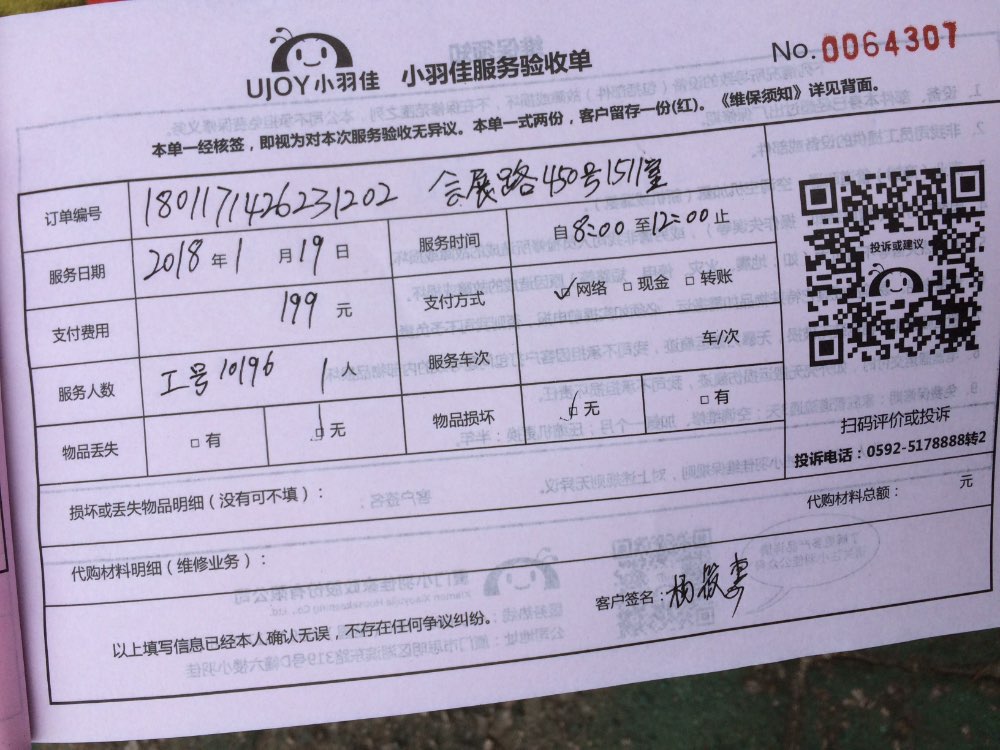 UJOY小羽佳 小羽佳服务验收单
No. 0064307
本单一经核签，即视为对本次服务验收无异议。本单一式两份，客户留存一份(红)。《维保须知》详见背面。
订单编号 180117142623 1202 会展路450号1511室
服务日期 2018 年 1 月 19 日 服务时间 自 8:00 至 12:00 止
支付费用 199 元 支付方式 网络 现金 转账
服务人数 工号10196 1 人 服务车次 车/次
物品丢失 有 无 物品损坏 无 有
投诉或建议
扫码评价或投诉
投诉电话：0592-5178888转2
损坏或丢失物品明细（没有可不填）：
代购材料总额： 元
代购材料明细（维修业务）：
以上填写信息已经本人确认无误，不存在任何争议纠纷。
客户签名：